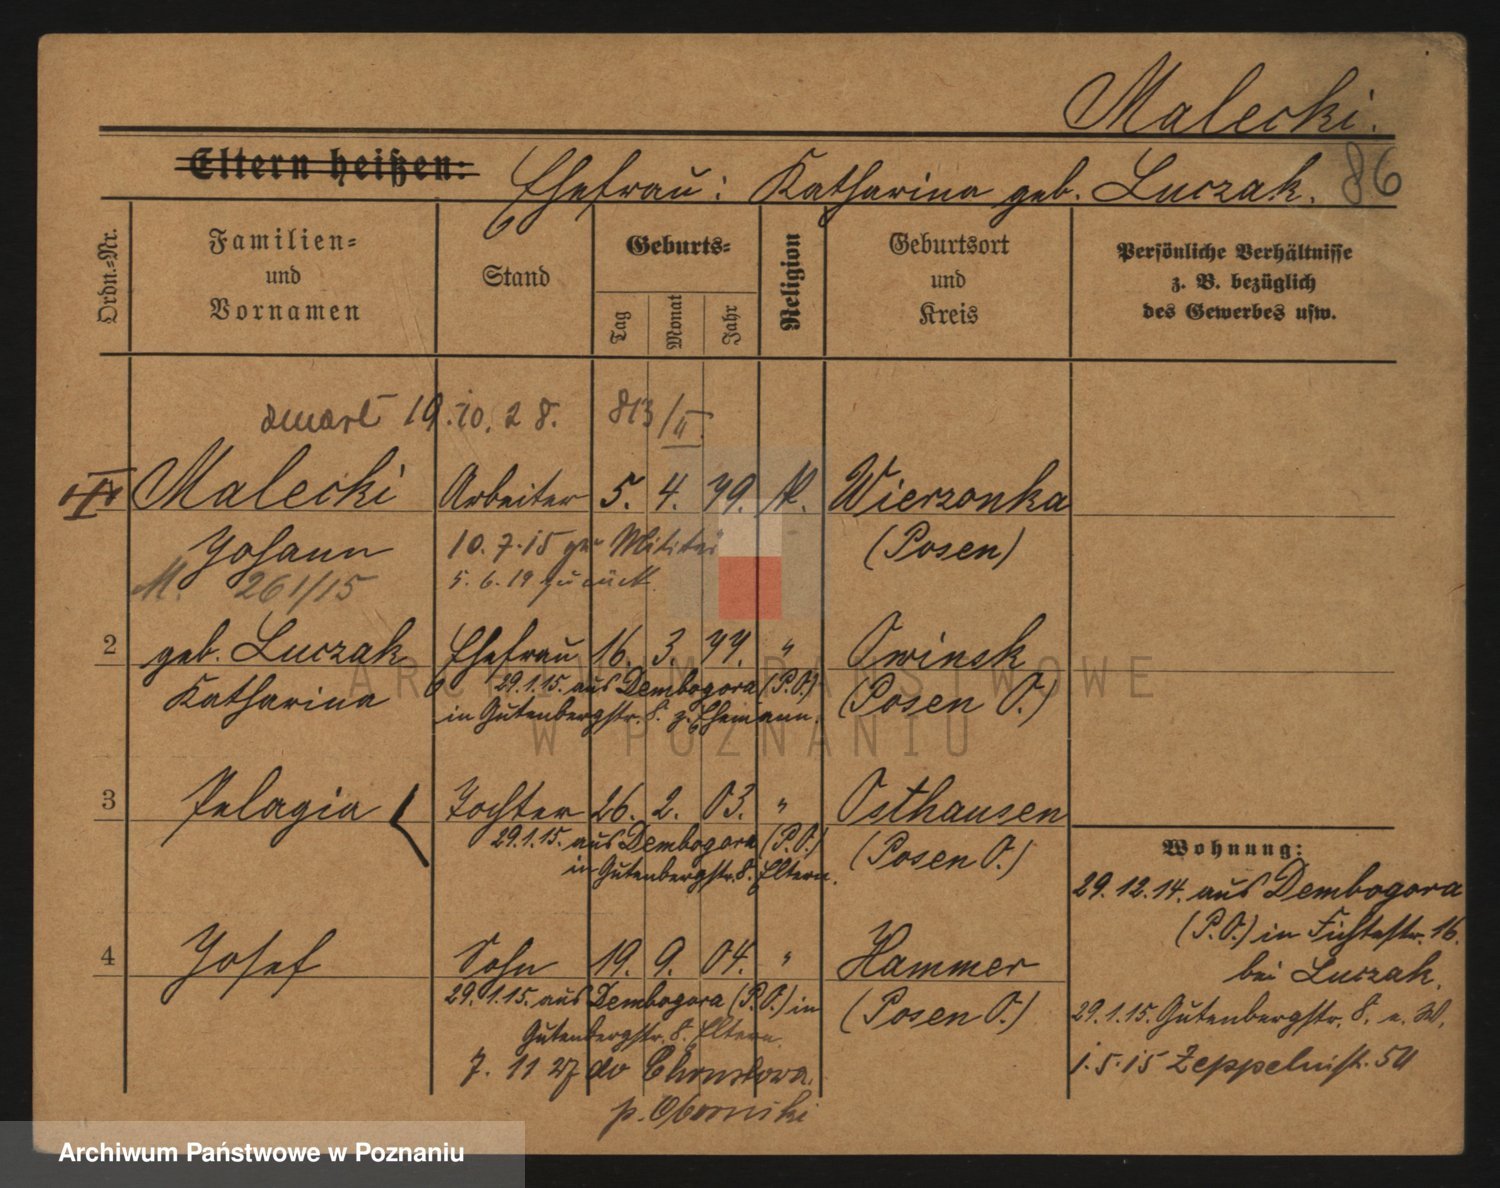 Malecki.
Eltern heißen: Ehefrau: Katharina geb. Luczak. 86
Ordn.=Nr.
Familien=
und
Vornamen
Stand
Geburts=
Tag
Monat
Jahr
Religion
Geburtsort
und
Kreis
Persönliche Verhältnisse
z. B. bezüglich
des Gewerbes usw.
zmarł 19.10.28. 813/II.
Malecki Arbeiter 5. 4. 79. K. Wierzonka
Johann 10.7.15 zur Militär (Posen)
M. 261/15 5.6.19 zurück.
2 geb. Luczak Ehefrau 16. 3. 77. " Owinsk
Katharina 29.1.15. aus Dembogora (P.O.) (Posen O.)
in Gutenbergstr. 8. z. Ehemann.
3 Pelagia Tochter 26. 2. 03. " Osthausen
29.1.15. aus Dembogora (P.O.) (Posen O.)
in Gutenbergstr. 8. Eltern.
4 Josef Sohn 19. 9. 04. " Hammer
29.1.15. aus Dembogora (P.O.) in (Posen O.)
Gutenbergstr. 8. Eltern.
7. 11 27 do
p. Obornicki
Wohnung:
29.12.14. aus Dembogora
(P.O.) in Fichtestr. 16.
bei Luczak.
29.1.15. Gutenbergstr. 8. e. W.
1.5.15 Zeppelinstr. 50
ARCHIWUM PAŃSTWOWE
W POZNANIU
Archiwum Państwowe w Poznaniu